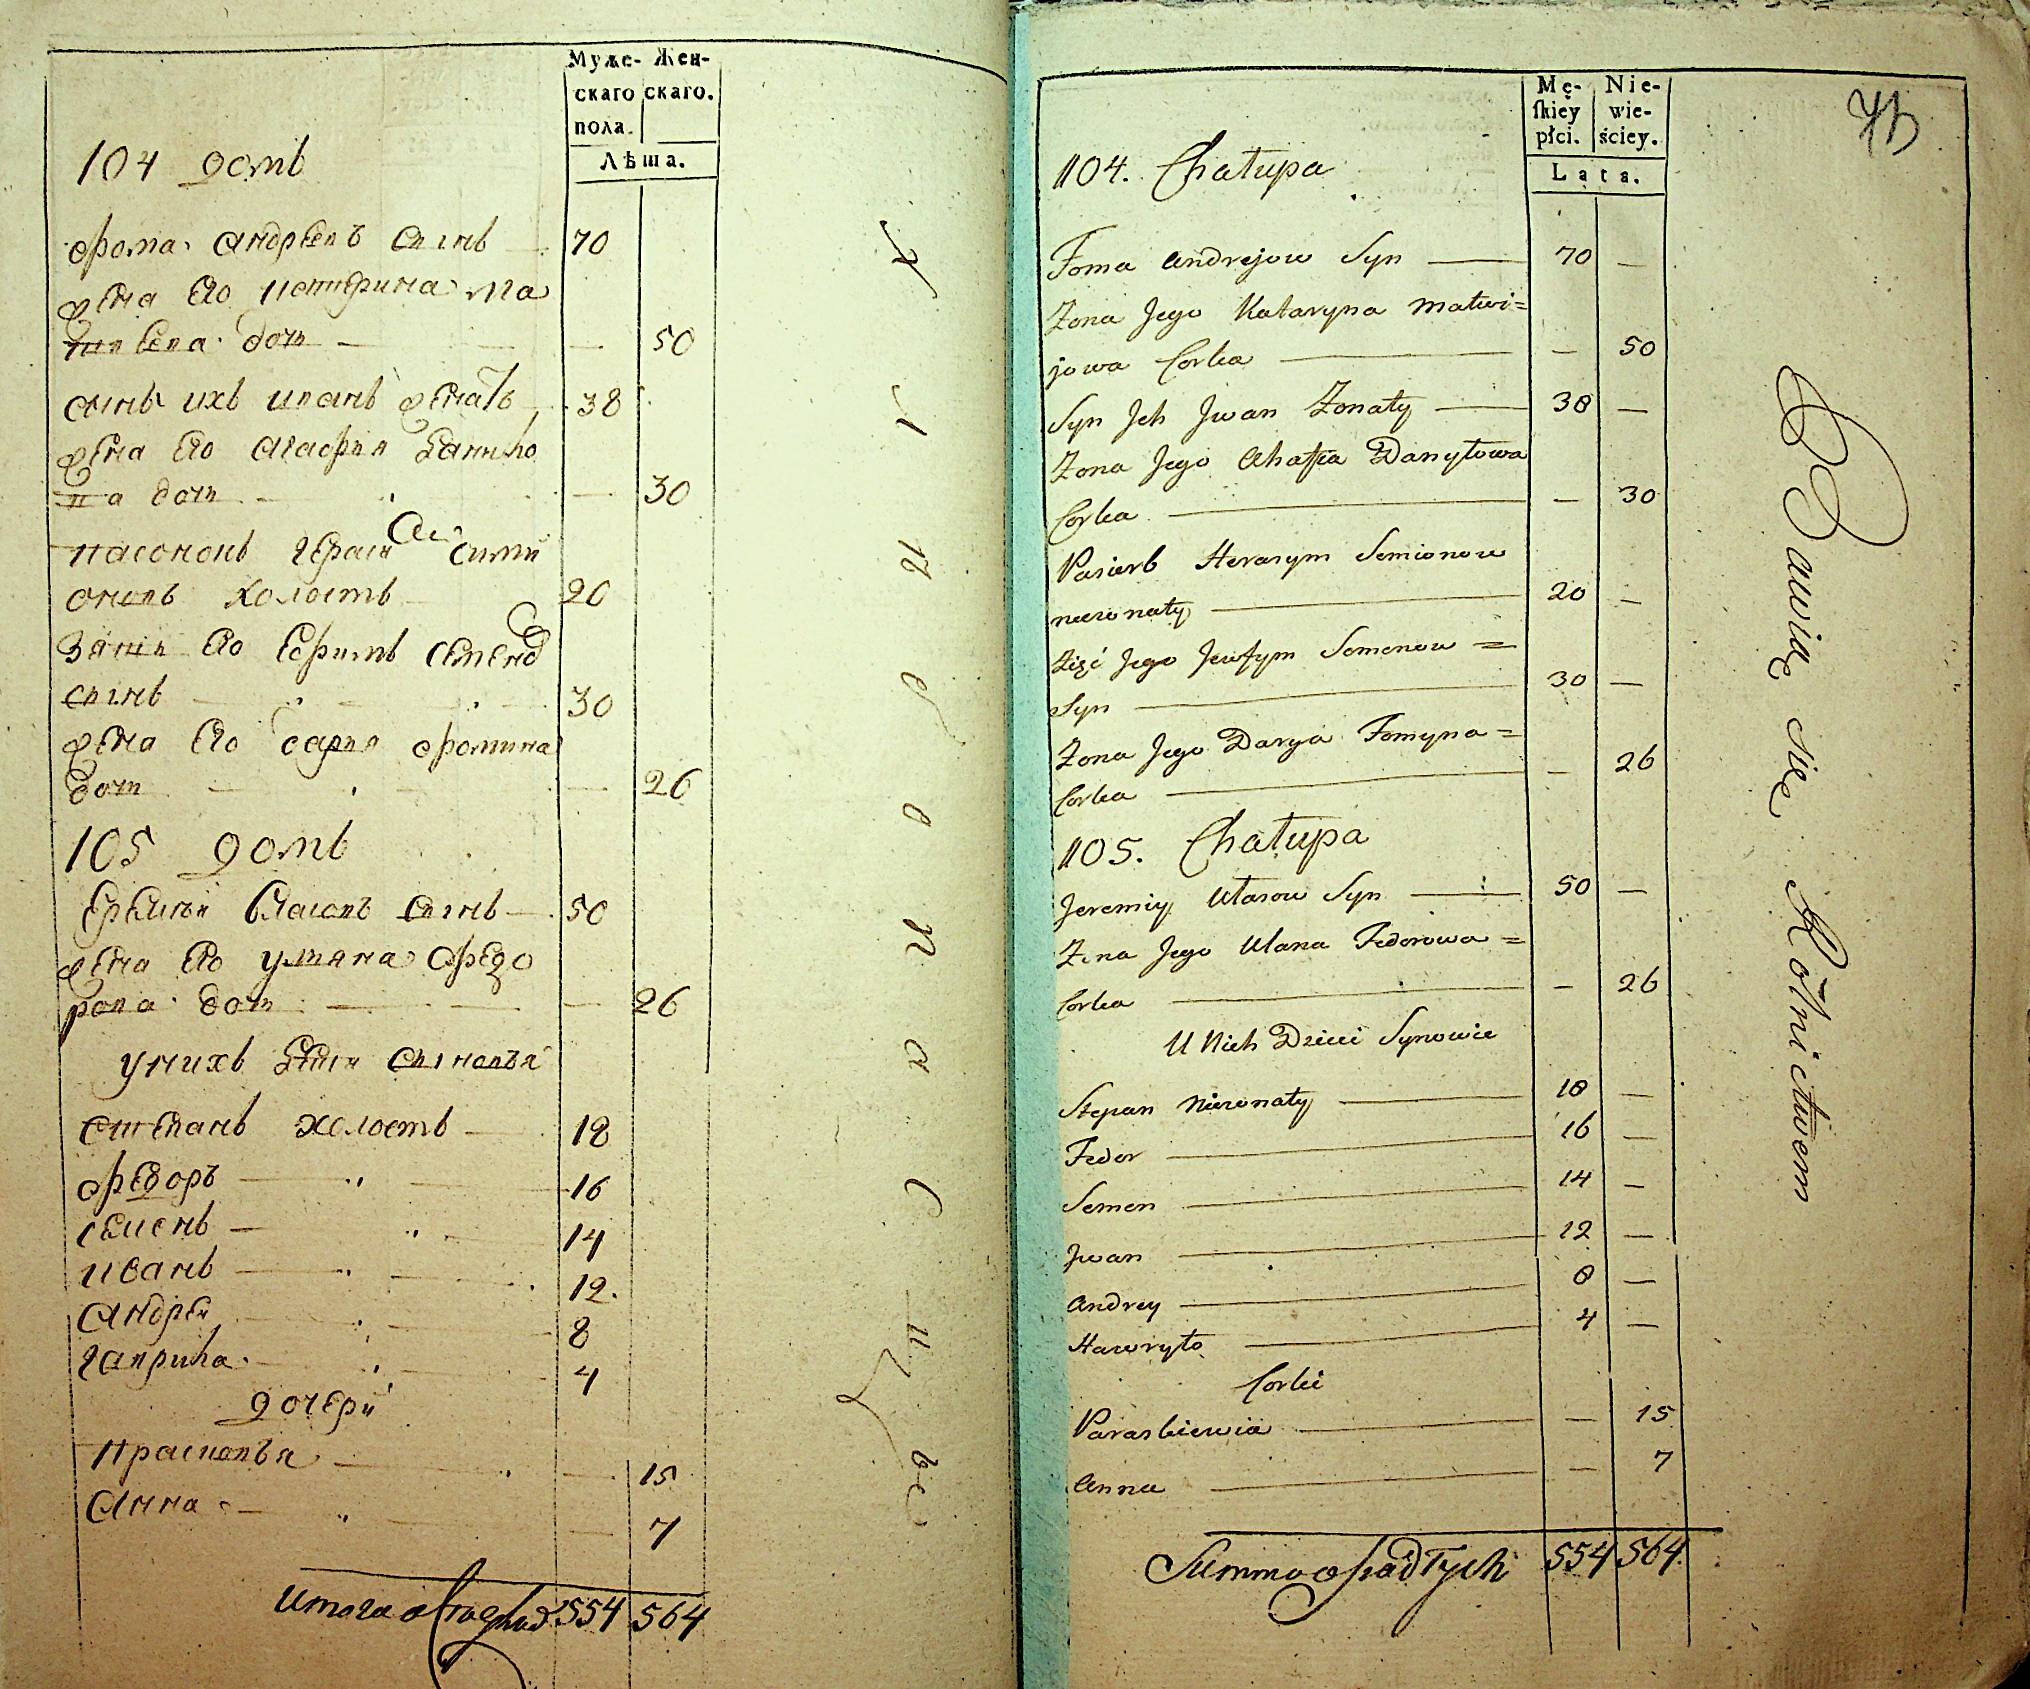 Муже- Жен-
скаго скаго.
пола.
Лѣта.
104 домъ
Фома Андреевъ сынъ — 70
жена Его Катерина Ма
твеева дочь — — 50
сынъ ихъ иванъ женатъ 38
жена Его Агафия Данило
ва дочь — — 30
пасонокъ Герасим Сими
оновъ холостъ 20
зять Его Ефимъ Семено
сынъ — 30
жена Его Дария Фомина
дочь — — 26
105 домъ
Еремѣй Власовъ сынъ — 50
жена Его Уляна Федо
рова дочь — — 26
у нихъ Дети сыновья
Степанъ холостъ — 18
Федоръ — 16
Семенъ — 14
Иванъ — 12.
Андрей 8
Гаврила 4
дочери
Прасковья — — 15
Анна — — 7
554 564
Mę- Nie-
skiey wie-
płci. ściey.
Lata.
73
104. Chałupa
Foma Andrejow Syn — 70 —
Zona Jego Kataryna Matwi=
jowa Corka — — 50
Syn Jch Jwan Zonaty — 38 —
Zona Jego Ahafia Danyłowa
Corka — — 30
Pasierb Herasym Semionow
niezonaty — 20 —
Zięć Jego Jewfym Semenow =
Syn — 30 —
Zona Jego Darya Fomyna =
Corka — — 26
105. Chałupa
Jeremiy Własow Syn — 50 —
Zona Jego Ulana Fedorowa =
Corka — — 26
U Nich Dzieci Synowie
Stepan Niezonaty — 18 —
Fedor — 16 —
Semen — 14 —
Jwan — 12 —
Andrey — 8 —
Hawryło — 4 —
Corki
Paraskiewia — — 15
Anna — — 7
Summa osiadłych 554 564.
Bawią się Rolnictwem